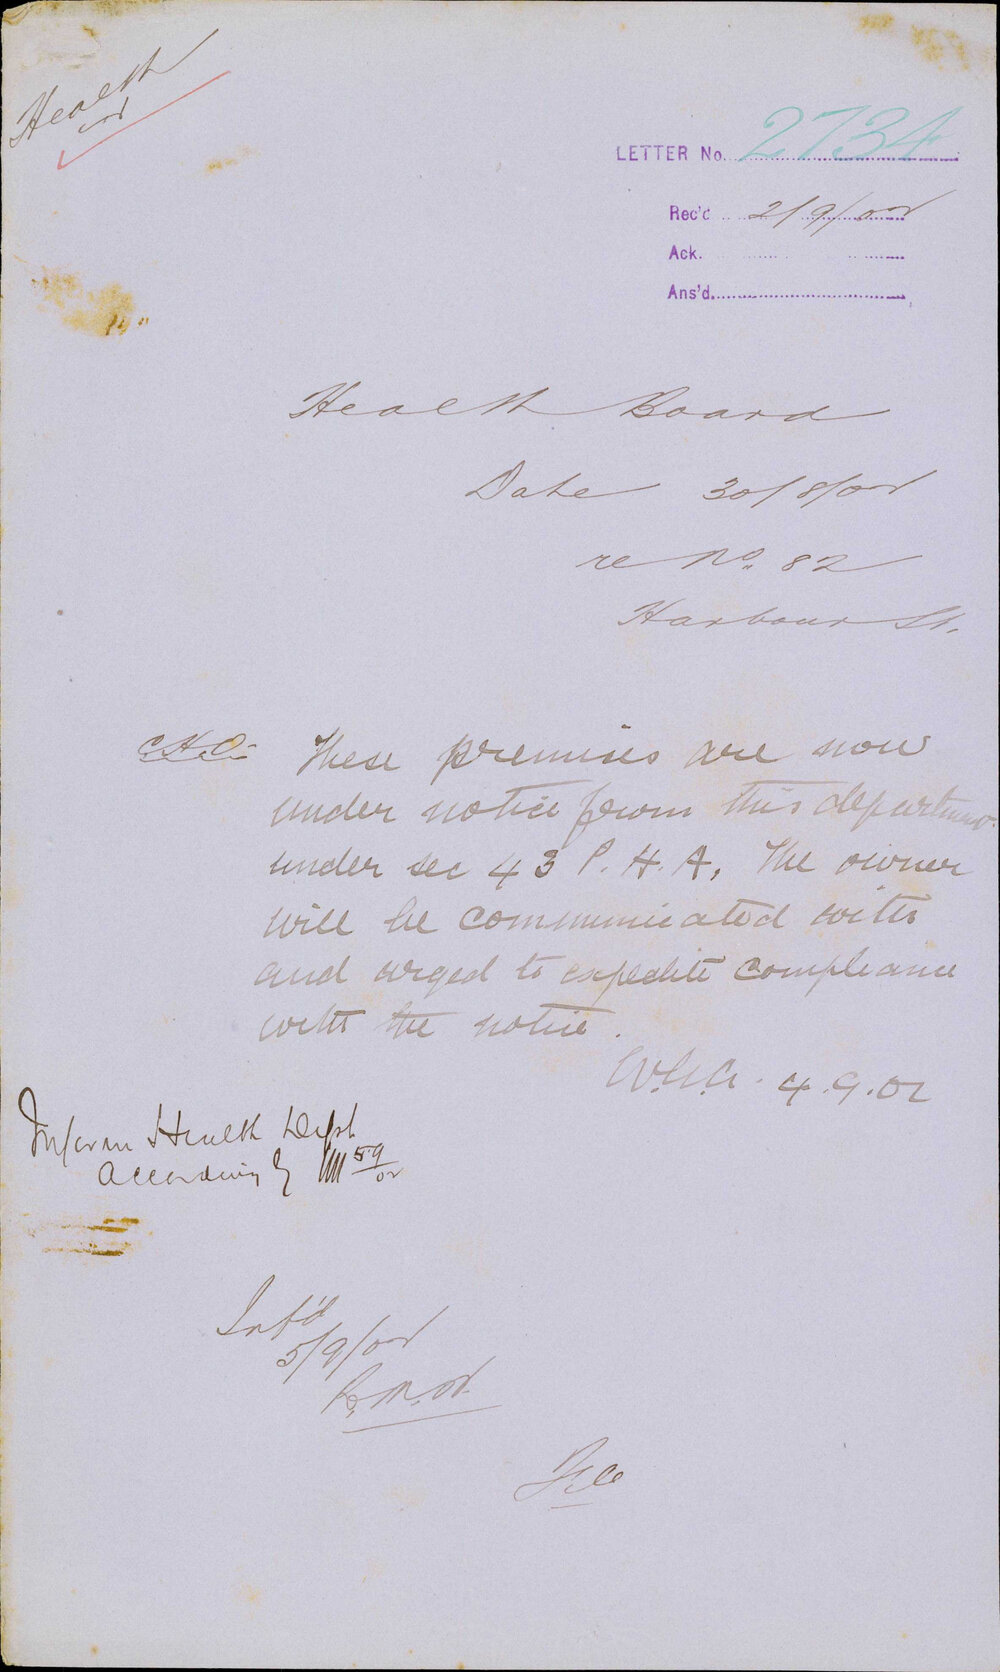 Health
LETTER No. 2734
Rec'd 2/9/02
Ack.
Ans'd.
Health Board
Date 30/8/02
re No. 82
Harbour St.
C.H.O. These premises are now
under notice from this department
under sec 43 P.H.A. The owner
will be communicated with
and urged to expedite compliance
with the notice.
4.9.02
Inform Health Dept
Accordingly 5/9/02
Inf'd
5/9/02
File